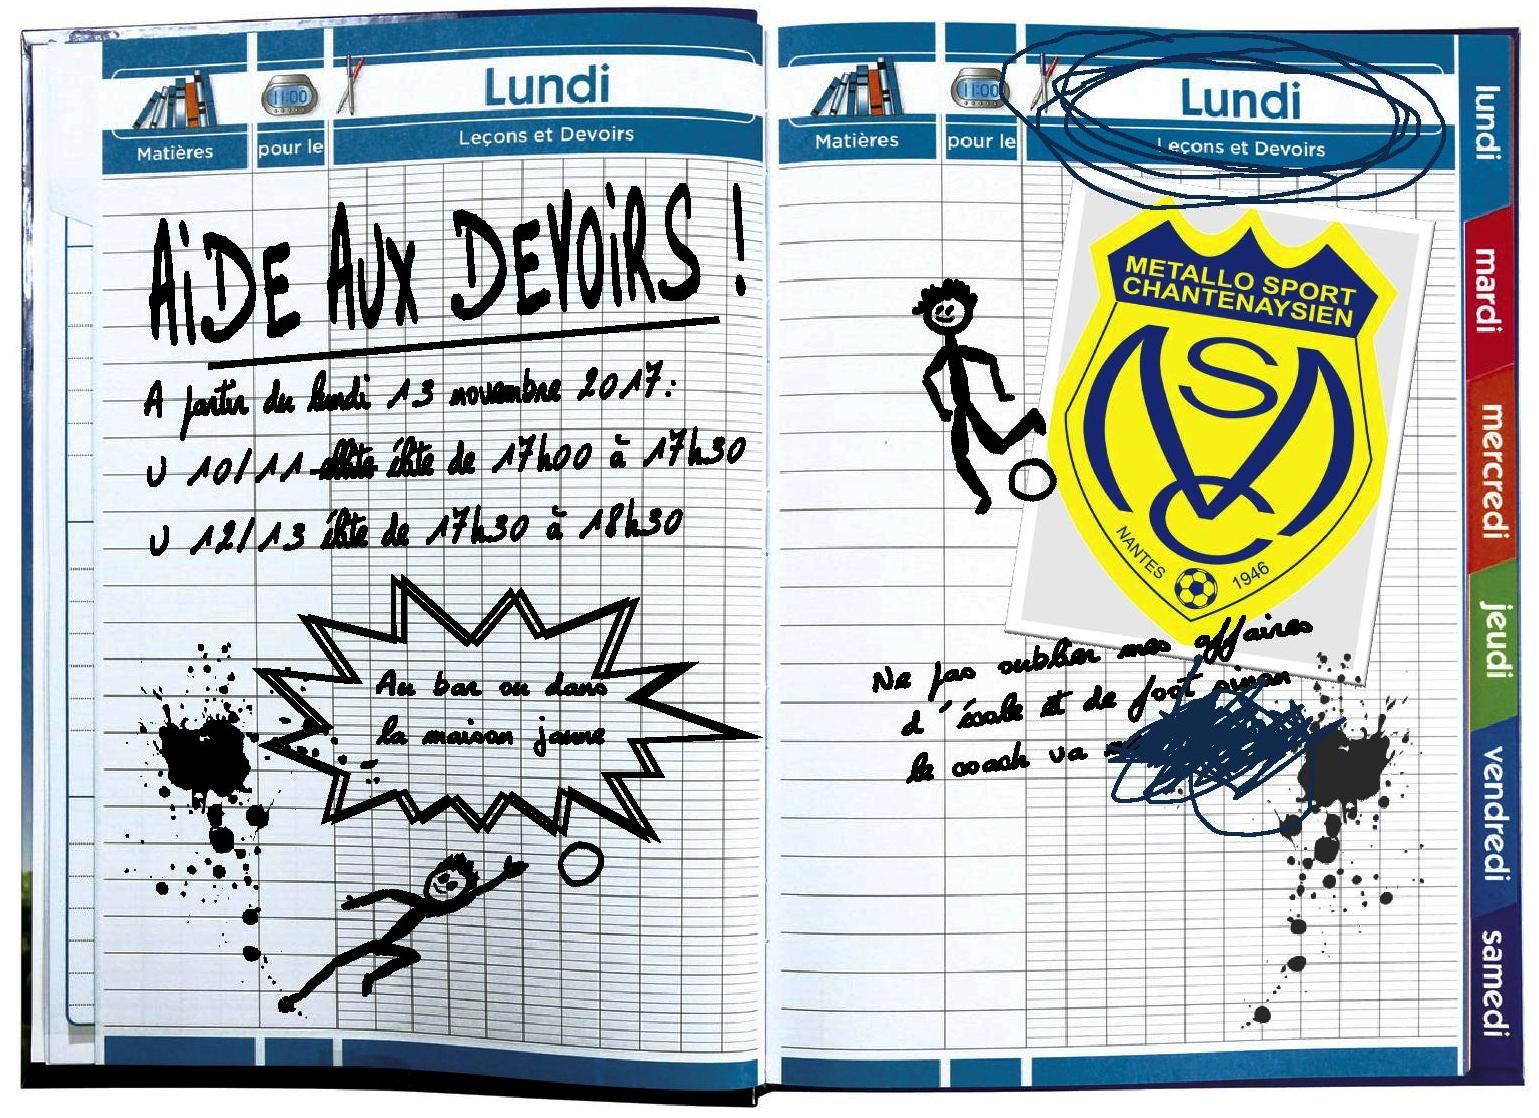 Lundi
Matières
pour le
Leçons et Devoirs
11:00
AiDE AUX DEVOiRS !
A partir du lundi 13 novembre 2017:
U 10/11 élite de 17h00 à 17h30
U 12/13 élite de 17h30 à 18h30
Au bar ou dans
la maison jaune
Lundi
Matières
pour le
Leçons et Devoirs
11:00
METALLO SPORT
CHANTENAYSIEN
MSC
NANTES
1946
Ne pas oublier mes affaires
d'école et de foot sinon
le coach va
lundi
mardi
mercredi
jeudi
vendredi
samedi